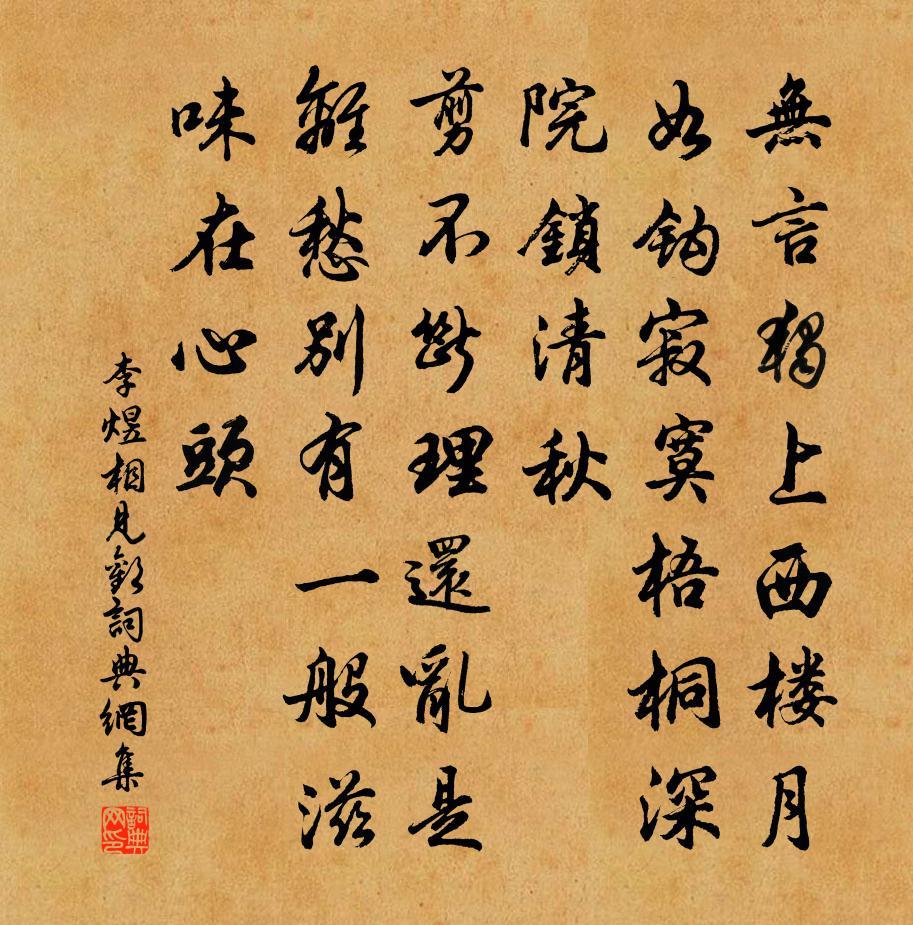 無言獨上西楼月
如鈎寂寞梧桐深
院鎖清秋
剪不斷理還亂是
離愁別有一般滋
味在心頭
李煜相見歡詞典網集
詞典网印